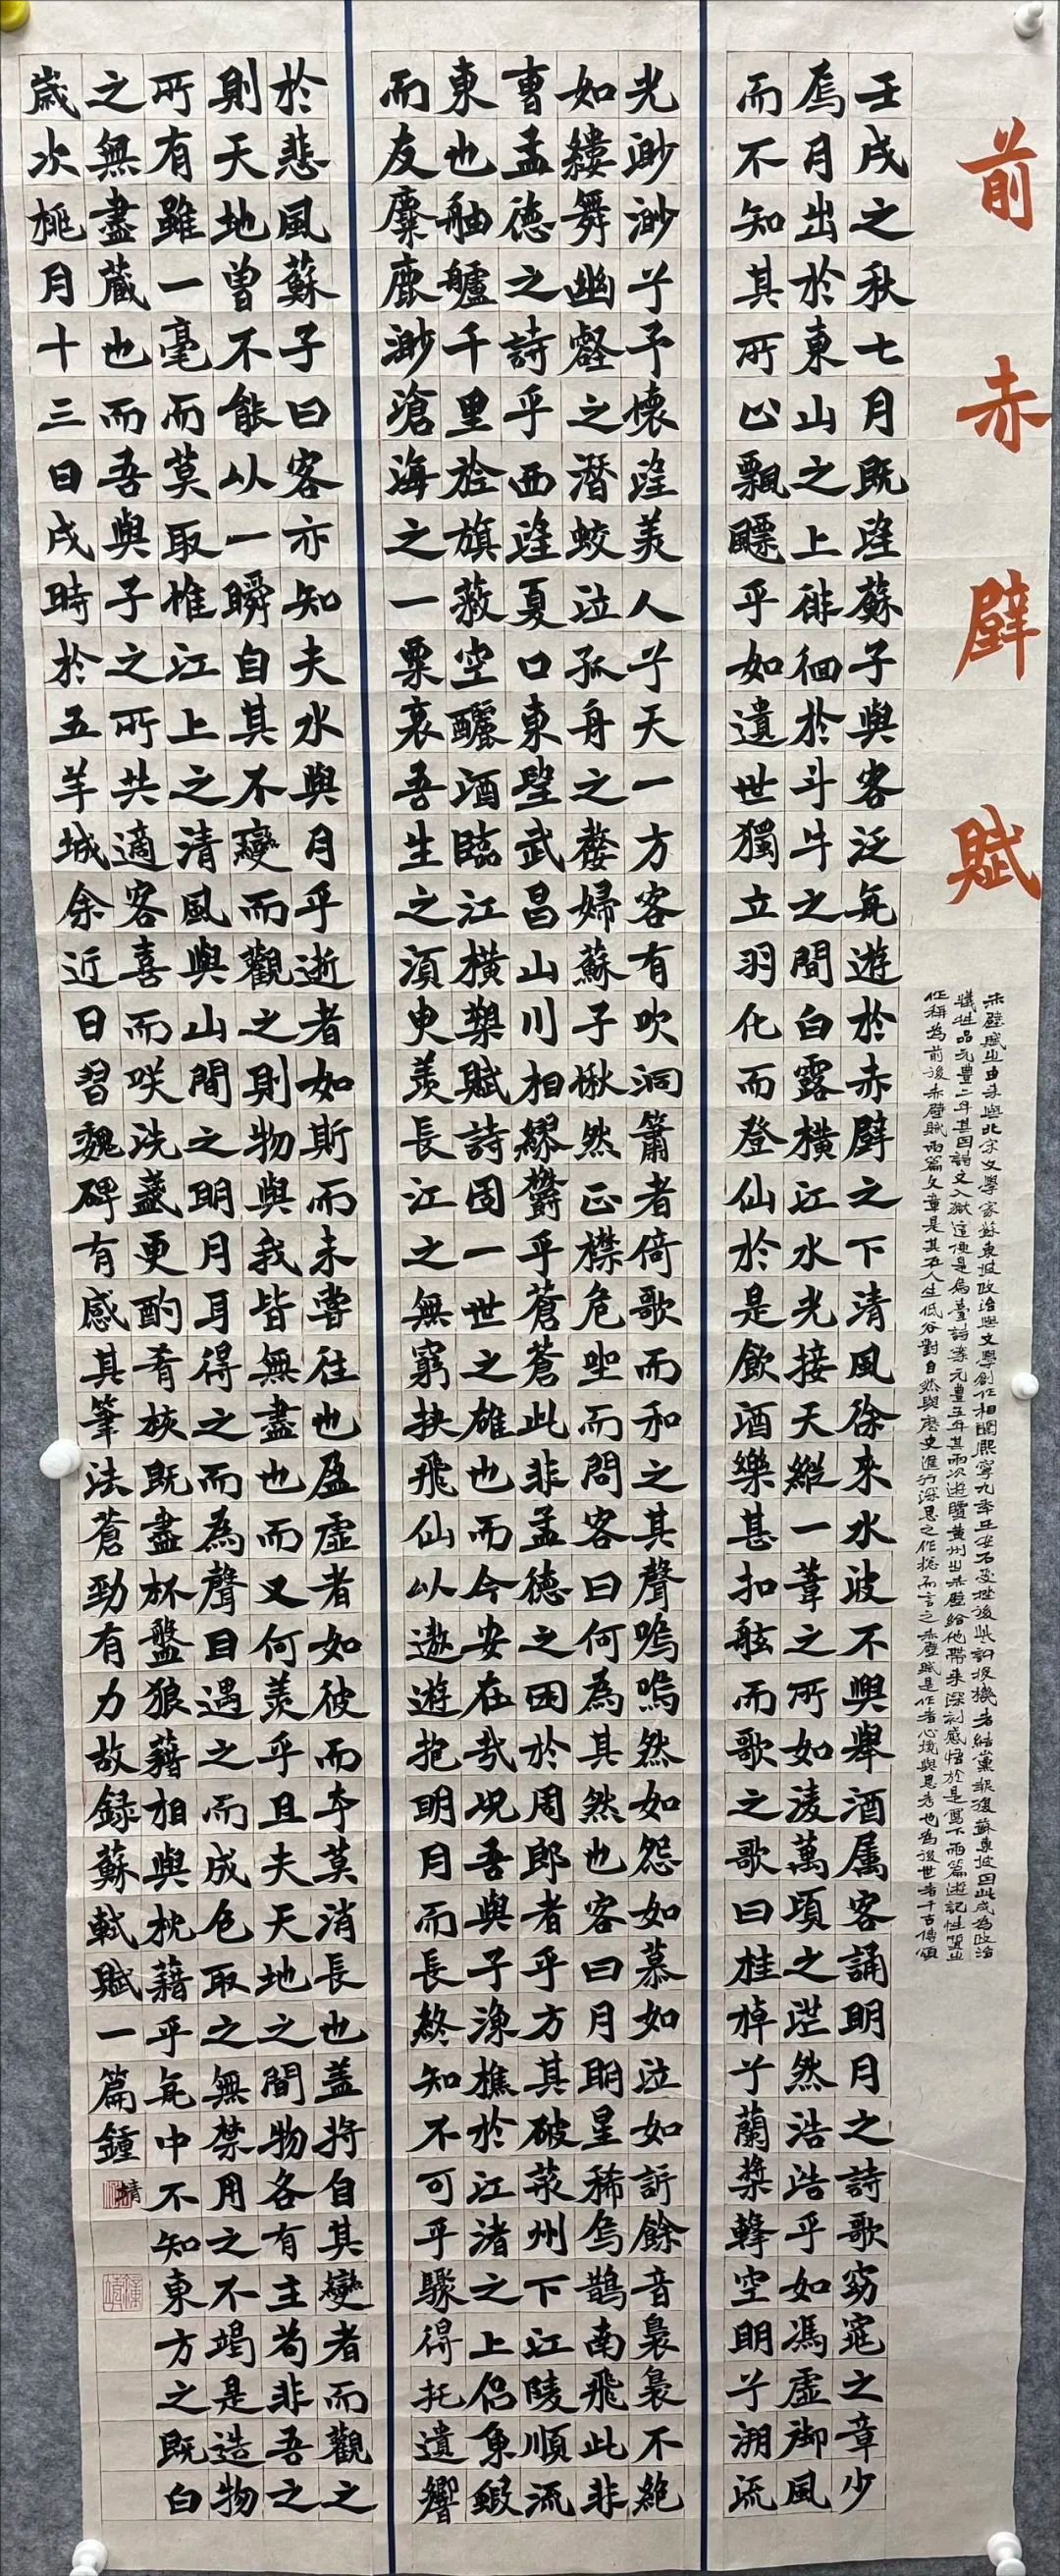 前赤壁賦
赤壁賦之由来與北宋文學家蘇東坡政治與文學創作相關熙寧九年王安石受挫後些許投機者結黨報復蘇東坡因此成為政治
犧牲品元豐二年其因詩文入獄這便是烏臺詩案元豐五年其兩次遊覽黃州之赤壁給他帶来深刻感悟於是寫下兩篇遊記性質之
作稱為前後赤壁賦兩篇文章是其在人生低谷對自然與歷史進行深思之作總而言之赤壁賦是作者心境與思考也為後世者千古傳頌
壬戌之秋七月既望蘇子與客泛舟遊於赤壁之下清風徐來水波不興舉酒屬客誦明月之詩歌窈窕之章少
焉月出於東山之上徘徊於斗牛之間白露橫江水光接天縱一葦之所如淩萬頃之茫然浩浩乎如馮虛御風
而不知其所止飄飄乎如遺世獨立羽化而登仙於是飲酒樂甚扣舷而歌之歌曰桂棹兮蘭槳擊空明兮溯流
光渺渺兮予懷望美人兮天一方客有吹洞簫者倚歌而和之其聲嗚嗚然如怨如慕如泣如訴餘音裊裊不絕
如縷舞幽壑之潛蛟泣孤舟之嫠婦蘇子愀然正襟危坐而問客曰何為其然也客曰月明星稀烏鵲南飛此非
曹孟德之詩乎西望夏口東望武昌山川相繆鬱乎蒼蒼此非孟德之困於周郎者乎方其破荊州下江陵順流
東也舳艫千里旌旗蔽空釃酒臨江橫槊賦詩固一世之雄也而今安在哉況吾與子漁樵於江渚之上侶魚蝦
而友麋鹿渺滄海之一粟哀吾生之須臾羨長江之無窮挾飛仙以遨遊抱明月而長終知不可乎驟得托遺響
於悲風蘇子曰客亦知夫水與月乎逝者如斯而未嘗往也盈虛者如彼而卒莫消長也蓋將自其變者而觀之
則天地曾不能以一瞬自其不變而觀之則物與我皆無盡也而又何羨乎且夫天地之間物各有主苟非吾之
所有雖一毫而莫取惟江上之清風與山間之明月耳得之而為聲目遇之而成色取之無禁用之不竭是造物
之無盡藏也而吾與子之所共適客喜而咲洗盞更酌肴核既盡杯盤狼藉相與枕藉乎舟中不知東方之既白
歲次桃月十三日戌時於五羊城余近日習魏碑有感其筆法蒼勁有力故錄蘇軾賦一篇鐘靖